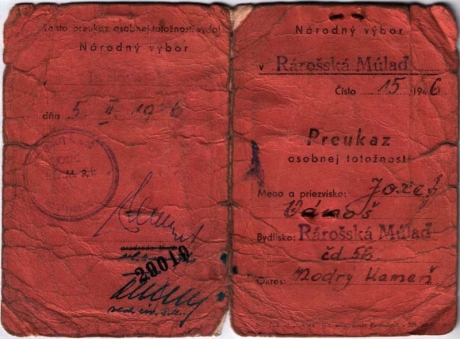 Tento preukaz osobnej totožnosti vydal
Národný výbor
v
dňa 5. II. 1946
20010
Národný výbor
v Rárošská Múlad
Číslo 15 1946
Preukaz
osobnej totožnosti
Meno a priezvisko: Jozef
Vámoš
Bydlisko: Rárošská Múlad
čd 56
Okres: Modrý Kameň